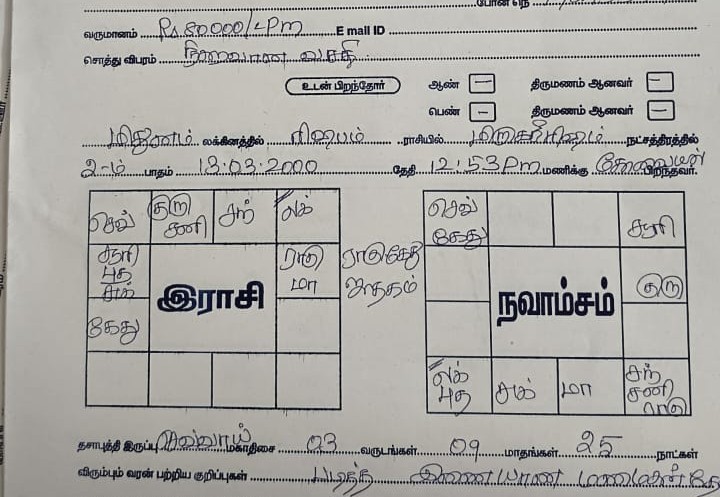 போன் எண்
வருமானம் Rs. 80000/- Pm E mail ID
சொத்து விபரம் நிறைவான வசதி
உடன் பிறந்தோர் ஆண் — திருமணம் ஆனவர் —
பெண் — திருமணம் ஆனவர் —
மிதுனம் லக்கினத்தில் ரிஷபம் ராசியில் மிருகசீரிஷம் நட்சத்திரத்தில்
2-ம் பாதம் 13.03.2000 தேதி 12:53 Pm மணிக்கு பிறந்தவர்.
செவ் குரு சனி சந் லக்
சூரி புத சுக் ராகு மா
கேது
இராசி
ராகு கேது ஜாதகம்
செவ் கேது சூரி
குரு
நவாம்சம்
லக் புத சுக் மா சந் சனி ராகு
தசாபுத்தி இருப்பு செவ்வாய் மகாதிசை 03 வருடங்கள் 09 மாதங்கள் 25 நாட்கள்
விரும்பும் வரன் பற்றிய குறிப்புகள் படித்த இணையான மணமகன்